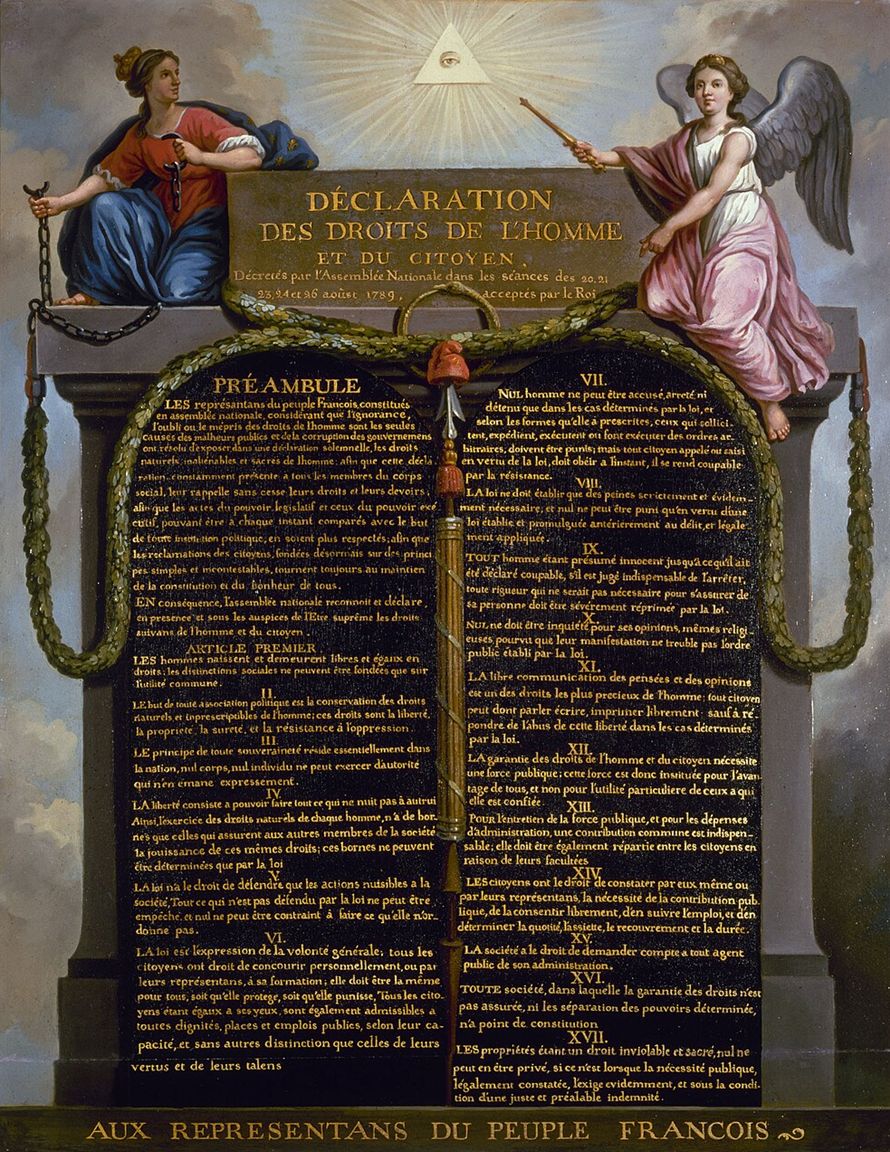 DÉCLARATION
DES DROITS DE L'HOMME
ET DU CITOYEN,
Décretés par l'Assemblée Nationale dans les séances des 20, 21
23, 24 et 26 août 1789, acceptés par le Roi
PRÉAMBULE
LES représantans du peuple Francois, constitués
en assemblée nationale, considérant que l'ignorance,
l'oubli ou le mépris des droits de l'homme sont les seules
causes des malheurs publics et de la corruption des gouvernemens
ont résolu d'exposer dans une déclaration solemnelle, les droits
naturels, inaliénables et sacrés de l'homme; afin que cette décla
ration, constamment présente a tous les membres du corps
social, leur rappelle sans cesse leurs droits et leurs devoirs,
afin que les actes du pouvoir législatif et ceux du pouvoir exé
cutif, pouvant être a chaque instant comparés avec le but
de toute institution politique, en soient plus respectés; afin que
les reclamations des citoyens, fondées désormais sur des princi
pes simples et incontestables, tournent toujours au maintien
de la constitution et du bonheur de tous.
EN conséquence, l'assemblée nationale reconnoit et déclare,
en presence et sous les auspices de l'Etre suprême les droits
suivans de l'homme et du citoyen.
ARTICLE PREMIER.
LES hommes naissent et demeurent libres et égaux en
droits; les distinctions sociales ne peuvent être fondées que sur
l'utilité commune.
II.
LE but de toute association politique est la conservation des droits
naturels et inprescriptibles de l'homme; ces droits sont la liberté,
la propriété, la sureté, et la résistance à l'oppression.
III.
LE principe de toute souveraineté réside essentiellement dans
la nation, nul corps, nul individu ne peut exercer d'autorité
qui n'en emane expressement.
IV.
LA liberté consiste a pouvoir faire tout ce qui ne nuit pas à autrui
Ainsi, l'exercice des droits naturels de chaque homme, n'a de bor-
nes que celles qui assurent aux autres membres de la société
la jouissance de ces mêmes droits; ces bornes ne peuvent
être déterminées que par la loi
V.
LA loi n'a le droit de défendre que les actions nuisibles a la
société, Tout ce qui n'est pas défendu par la loi ne peut être
empêché, et nul ne peut être contraint à faire ce qu'elle n'or-
donne pas.
VI.
LA loi est l'expression de la volonté générale; tous les
citoyens ont droit de concourir personnellement, ou par
leurs représentans, à sa formation; elle doit être la même
pour tous, soit qu'elle protege, soit qu'elle punisse, Tous les cito-
yens étant égaux a ses yeux, sont également admissibles a
toutes dignités, places et emplois publics, selon leur ca-
pacité, et sans autres distinction que celles de leurs
vertus et de leurs talens
VII.
NUL homme ne peut être accusé, arreté ni
détenu que dans les cas déterminés par la loi, et
selon les formes qu'elle à prescrites, ceux qui sollici-
tent, expédient, exécutent ou font exécuter des ordres ar-
bitraires, doivent être punis; mais tout citoyen appelé ou saisi
en vertu de la loi, doit obéir a l'instant, il se rend coupable
par la résistance.
VIII.
LA loi ne doit établir que des peines strictement et évidem-
ment nécessaire, et nul ne peut être puni qu'en vertu d'une
loi établie et promulguée antérierement au délit, et légale-
ment appliquée.
IX.
TOUT homme étant présumé innocent jusqu'a ce qu'il ait
été déclaré coupable, s'il est jugé indispensable de l'arrêter,
toute rigueur qui ne serait pas nécessaire pour s'assurer de
sa personne doit être sévèrement réprimée par la loi.
X.
NUL ne doit être inquiété pour ses opinions, mêmes religi
euses, pourvu que leur manifestation ne trouble pas l'ordre
public établi par la loi.
XI.
LA libre communication des pensées et des opinions
est un des droits les plus precieux de l'homme; tout citoyen
peut dont parler écrire, imprimer librement; sauf à ré-
pondre de l'abus de cette liberté dans les cas déterminés
par la loi.
XII.
LA garantie des droits de l'homme et du citoyen nécessite
une force publique; cette force est donc instituée pour l'avan
tage de tous, et non pour l'utilité particuliere de ceux a qui
elle est confiée.
XIII.
POUR l'entretien de la force publique, et pour les dépenses
d'administration, une contribution commune est indispen-
sable; elle doit être également répartie entre les citoyens en
raison de leurs facultées
XIV.
LES citoyens ont le droit de constater par eux même ou
par leurs représentans, la nécessité de la contribution pub-
lique, de la consentir librement, d'en suivre l'emploi, et d'en
déterminer la quotité, l'assiette, le recouvrement et la durée.
XV.
LA société a le droit de demander compte a tout agent
public de son administration.
XVI.
TOUTE société, dans laquelle la garantie des droits n'est
pas assurée, ni les séparation des pouvoirs déterminée,
n'a point de constitution
XVII.
LES propriétés étant un droit inviolable et sacré, nul ne
peut en être privé, si ce n'est lorsque la nécessité publique,
légalement constatée, l'exige evidemment, et sous la condi-
tion d'une juste et préalable indemnité.
AUX REPRESENTANS DU PEUPLE FRANCOIS